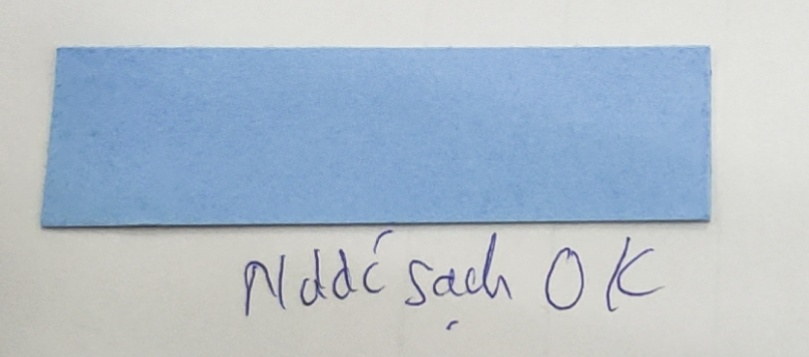 Nước sạch OK